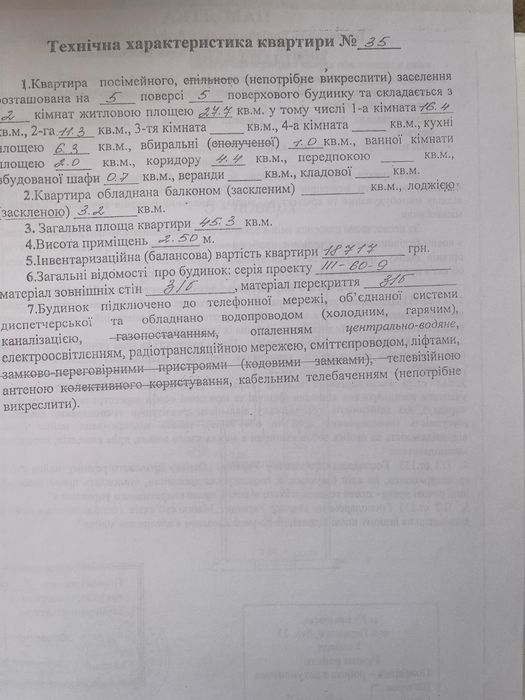 Технічна характеристика квартири № 35
1.Квартира посімейного, спільного (непотрібне викреслити) заселення
розташована на 5 поверсі 5 поверхового будинку та складається з
2 кімнат житловою площею 27.7 кв.м. у тому числі 1-а кімната 16.4
кв.м., 2-га 11.3 кв.м., 3-тя кімната ____ кв.м., 4-а кімната ____ кв.м., кухні
площею 6.3 кв.м., вбиральні (сполученої) 1.0 кв.м., ванної кімнати
площею 2.0 кв.м., коридору 4.4 кв.м., передпокою ____ кв.м.,
вбудованої шафи 0.7 кв.м., веранди ____ кв.м., кладової ____ кв.м.
2.Квартира обладнана балконом (заскленим) ____ кв.м., лоджією
(заскленою) 3.2 кв.м.
3. Загальна площа квартири 45.3 кв.м.
4.Висота приміщень 2.50 м.
5.Інвентаризаційна (балансова) вартість квартири 18717 грн.
6.Загальні відомості про будинок: серія проекту III-60-9
матеріал зовнішніх стін з/б, матеріал перекриття з/б
7.Будинок підключено до телефонної мережі, об'єднаної системи
диспетчерської та обладнано водопроводом (холодним, гарячим),
каналізацією, газопостачанням, опаленням центрально-водяне,
електроосвітленням, радіотрансляційною мережею, сміттєпроводом, ліфтами,
замково-переговірними пристроями (кодовими замками), телевізійною
антеною колективного користування, кабельним телебаченням (непотрібне
викреслити).